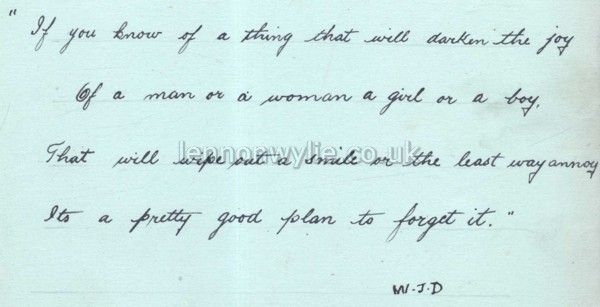 "If you know of a thing that will darken the joy
Of a man or a woman a girl or a boy.
That will wipe out a smile or the least way annoy
Its a pretty good plan to forget it."
W.J.D
lennonwylie.co.uk